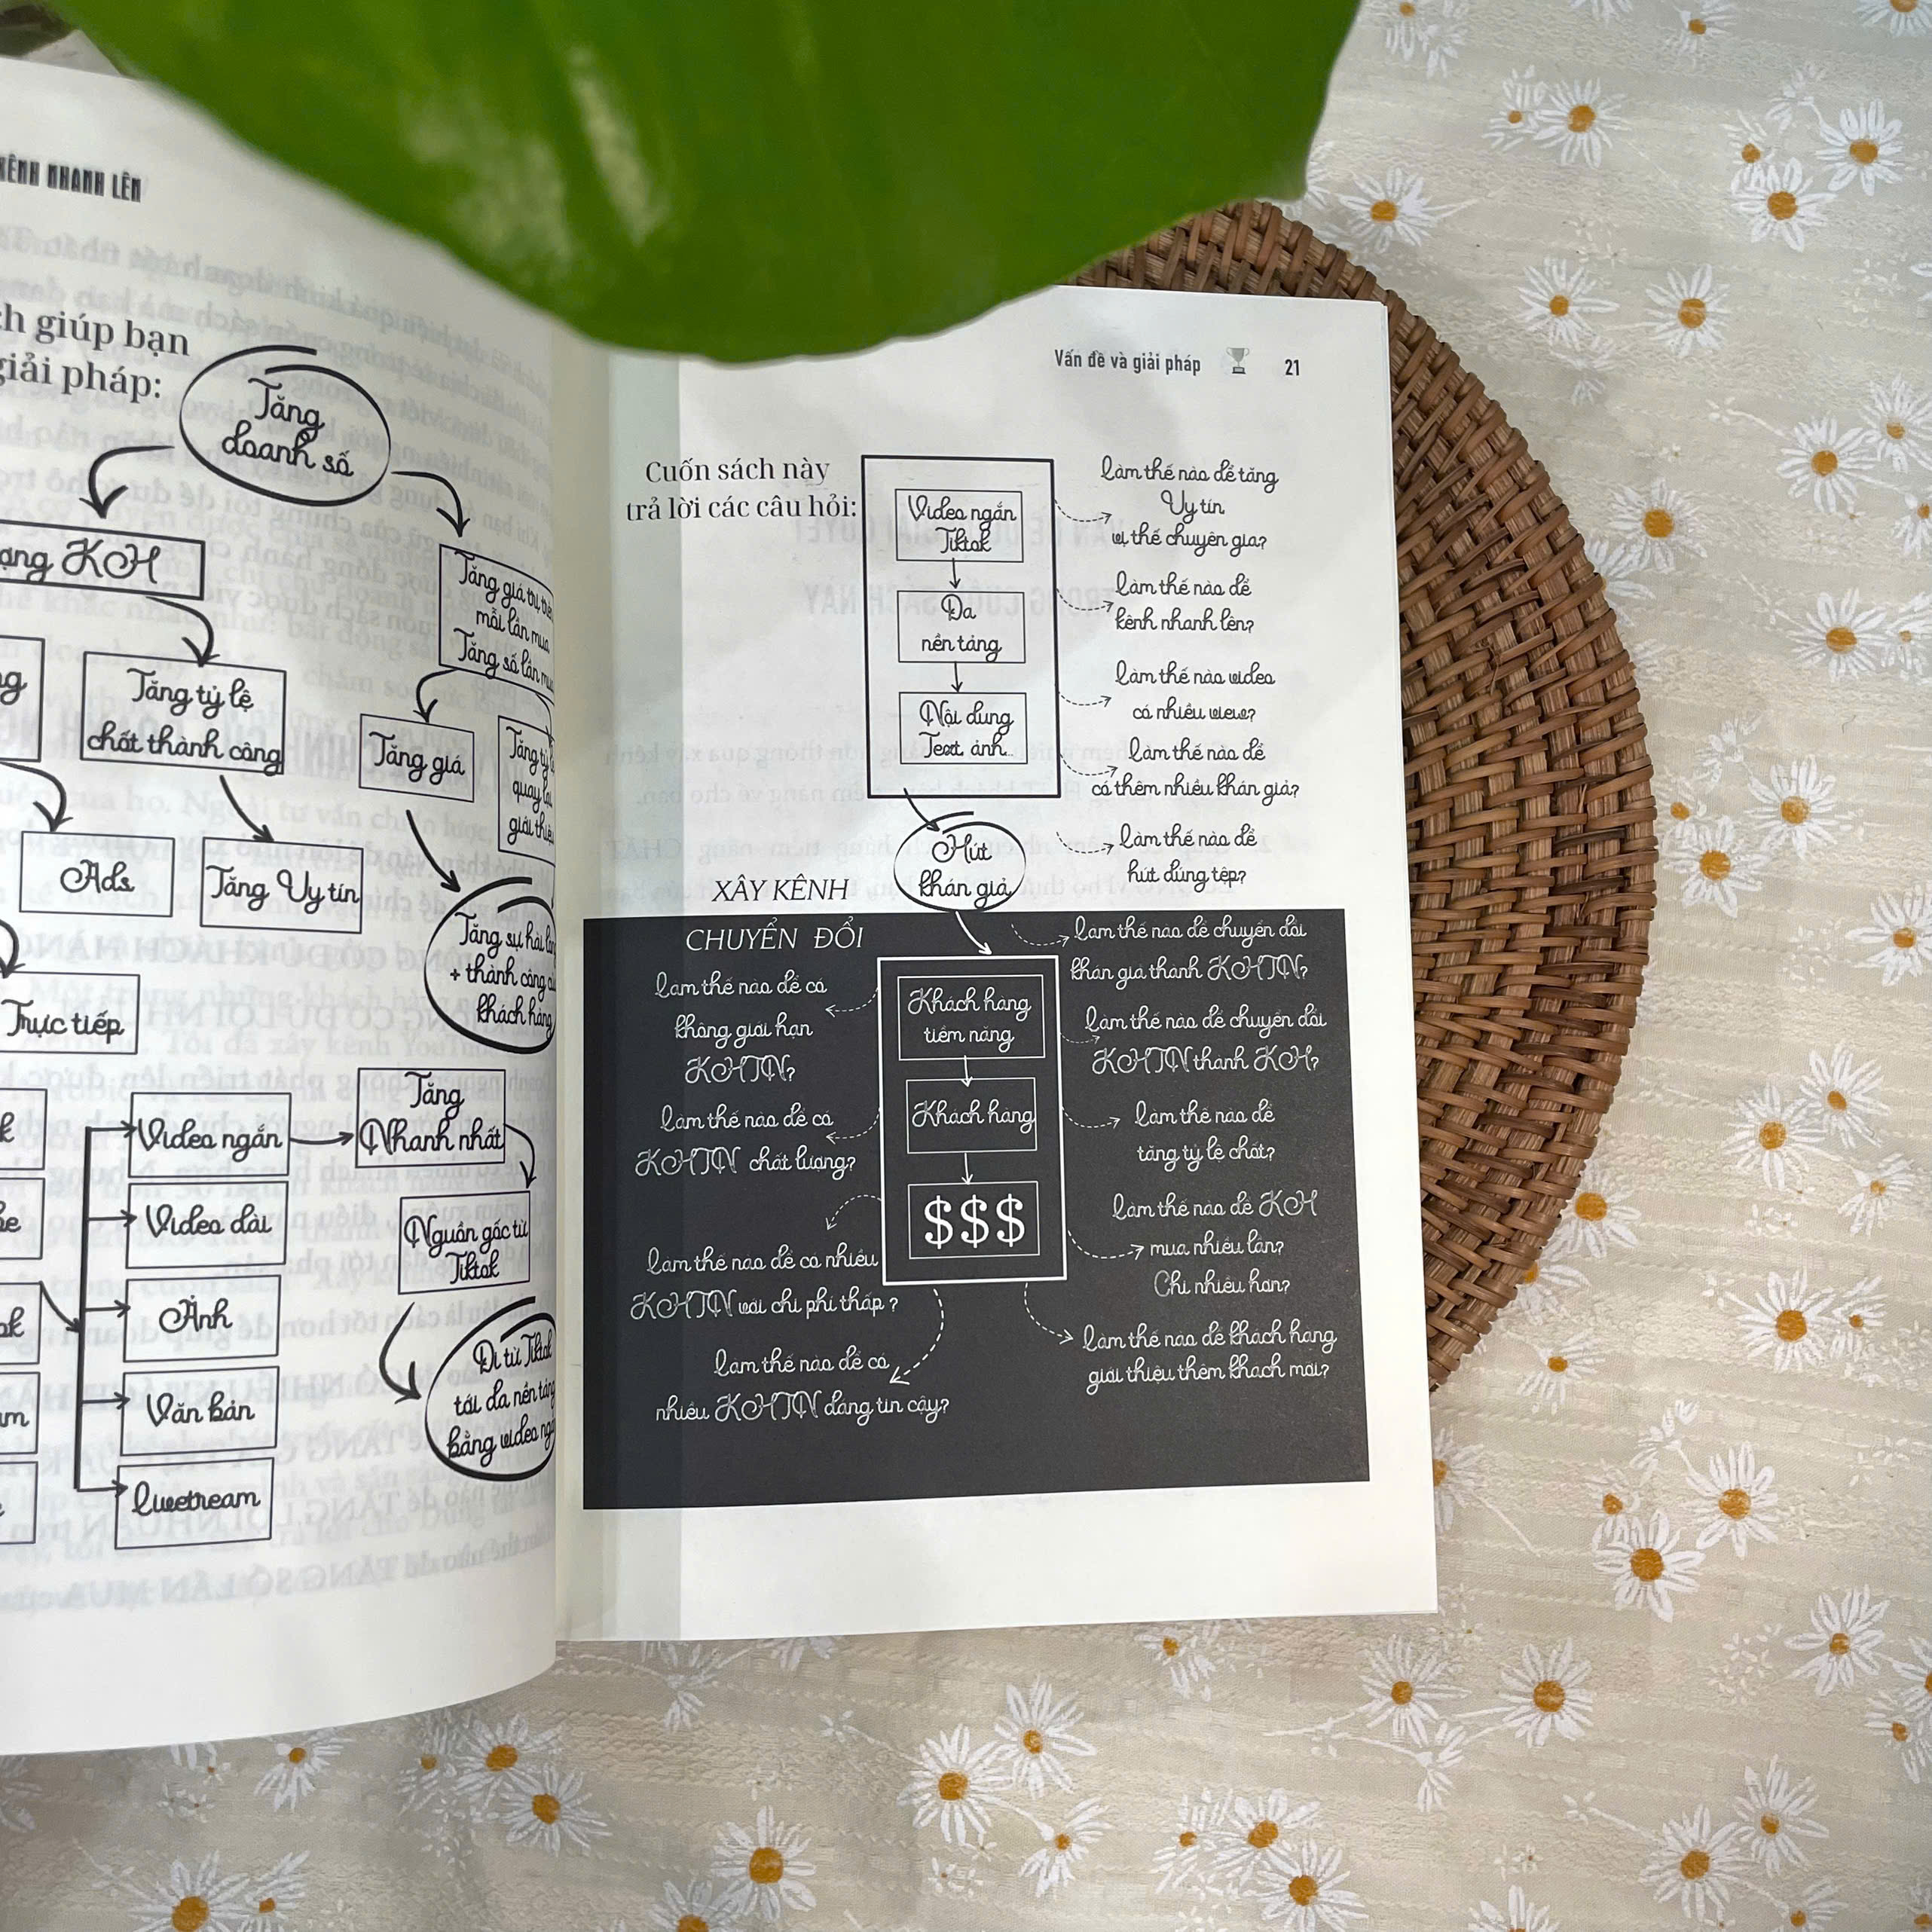 KÊNH NHANH LÊN
giúp bạn
giải pháp:
Tăng
doanh số
KCH
Tăng giá trị trên
mỗi lần mua
Tăng số lần mua
Tăng tỷ lệ
chốt thành công
Tăng giá
Tăng tỷ lệ
quay lại
giới thiệu
Ads
Tăng Uy tín
Tăng sự hài lòng
+ thành công của
khách hàng
Trực tiếp
Video ngắn
Video dài
Ảnh
Văn bản
Livetream
Tăng
Nhanh nhất
Nguồn gốc từ
Tiktok
Đi từ Tiktok
tới đa nền tảng
bằng video ngắn
Vấn đề và giải pháp 21
Cuốn sách này
trả lời các câu hỏi:
Video ngắn
Tiktok
Đa
nền tảng
Nội dung
Text ảnh...
Hút
khán giả
làm thế nào để tăng
Uy tín
vị thế chuyên gia?
làm thế nào để
kênh nhanh lên?
làm thế nào video
có nhiều view?
làm thế nào để
có thêm nhiều khán giả?
làm thế nào để
hút đúng tệp?
XÂY KÊNH
CHUYỂN ĐỔI
làm thế nào để có
không giới hạn
KHTN?
làm thế nào để có
KHTN chất lượng?
làm thế nào để có nhiều
KHTN với chi phí thấp ?
làm thế nào để có
nhiều KHTN đáng tin cậy?
Khách hàng
tiềm năng
Khách hàng
$$$
làm thế nào để chuyển đổi
khán giả thành KHTN?
làm thế nào để chuyển đổi
KHTN thành KH?
làm thế nào để
tăng tỷ lệ chốt?
làm thế nào để KH
mua nhiều lần?
Chi nhiều hơn?
làm thế nào để khách hàng
giới thiệu thêm khách mới?